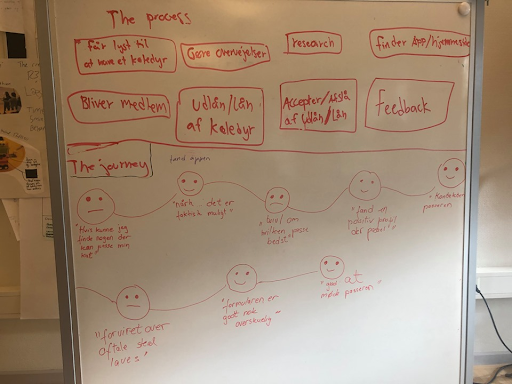 The process
Får lyst til
at være et kæledyr
Gøre overvejelser
research
finder APP/hjemmeside
Bliver medlem
Udlån/lån
af kæledyr
Accepter/Afslå
af Udlån/Lån
Feedback
The journey
fandt appen
"Hvis kunne jeg
finde nogen der
kan passe min
kat"
"nårh... det er
faktisk muligt"
"tvivl om
hvilken passer
bedst"
"fandt en
positiv profil
"Kontakter
personen
"forvirret over
aftale sted
laves"
"formularen er
godt nok
overskuelig"
"glad at
møde personen"